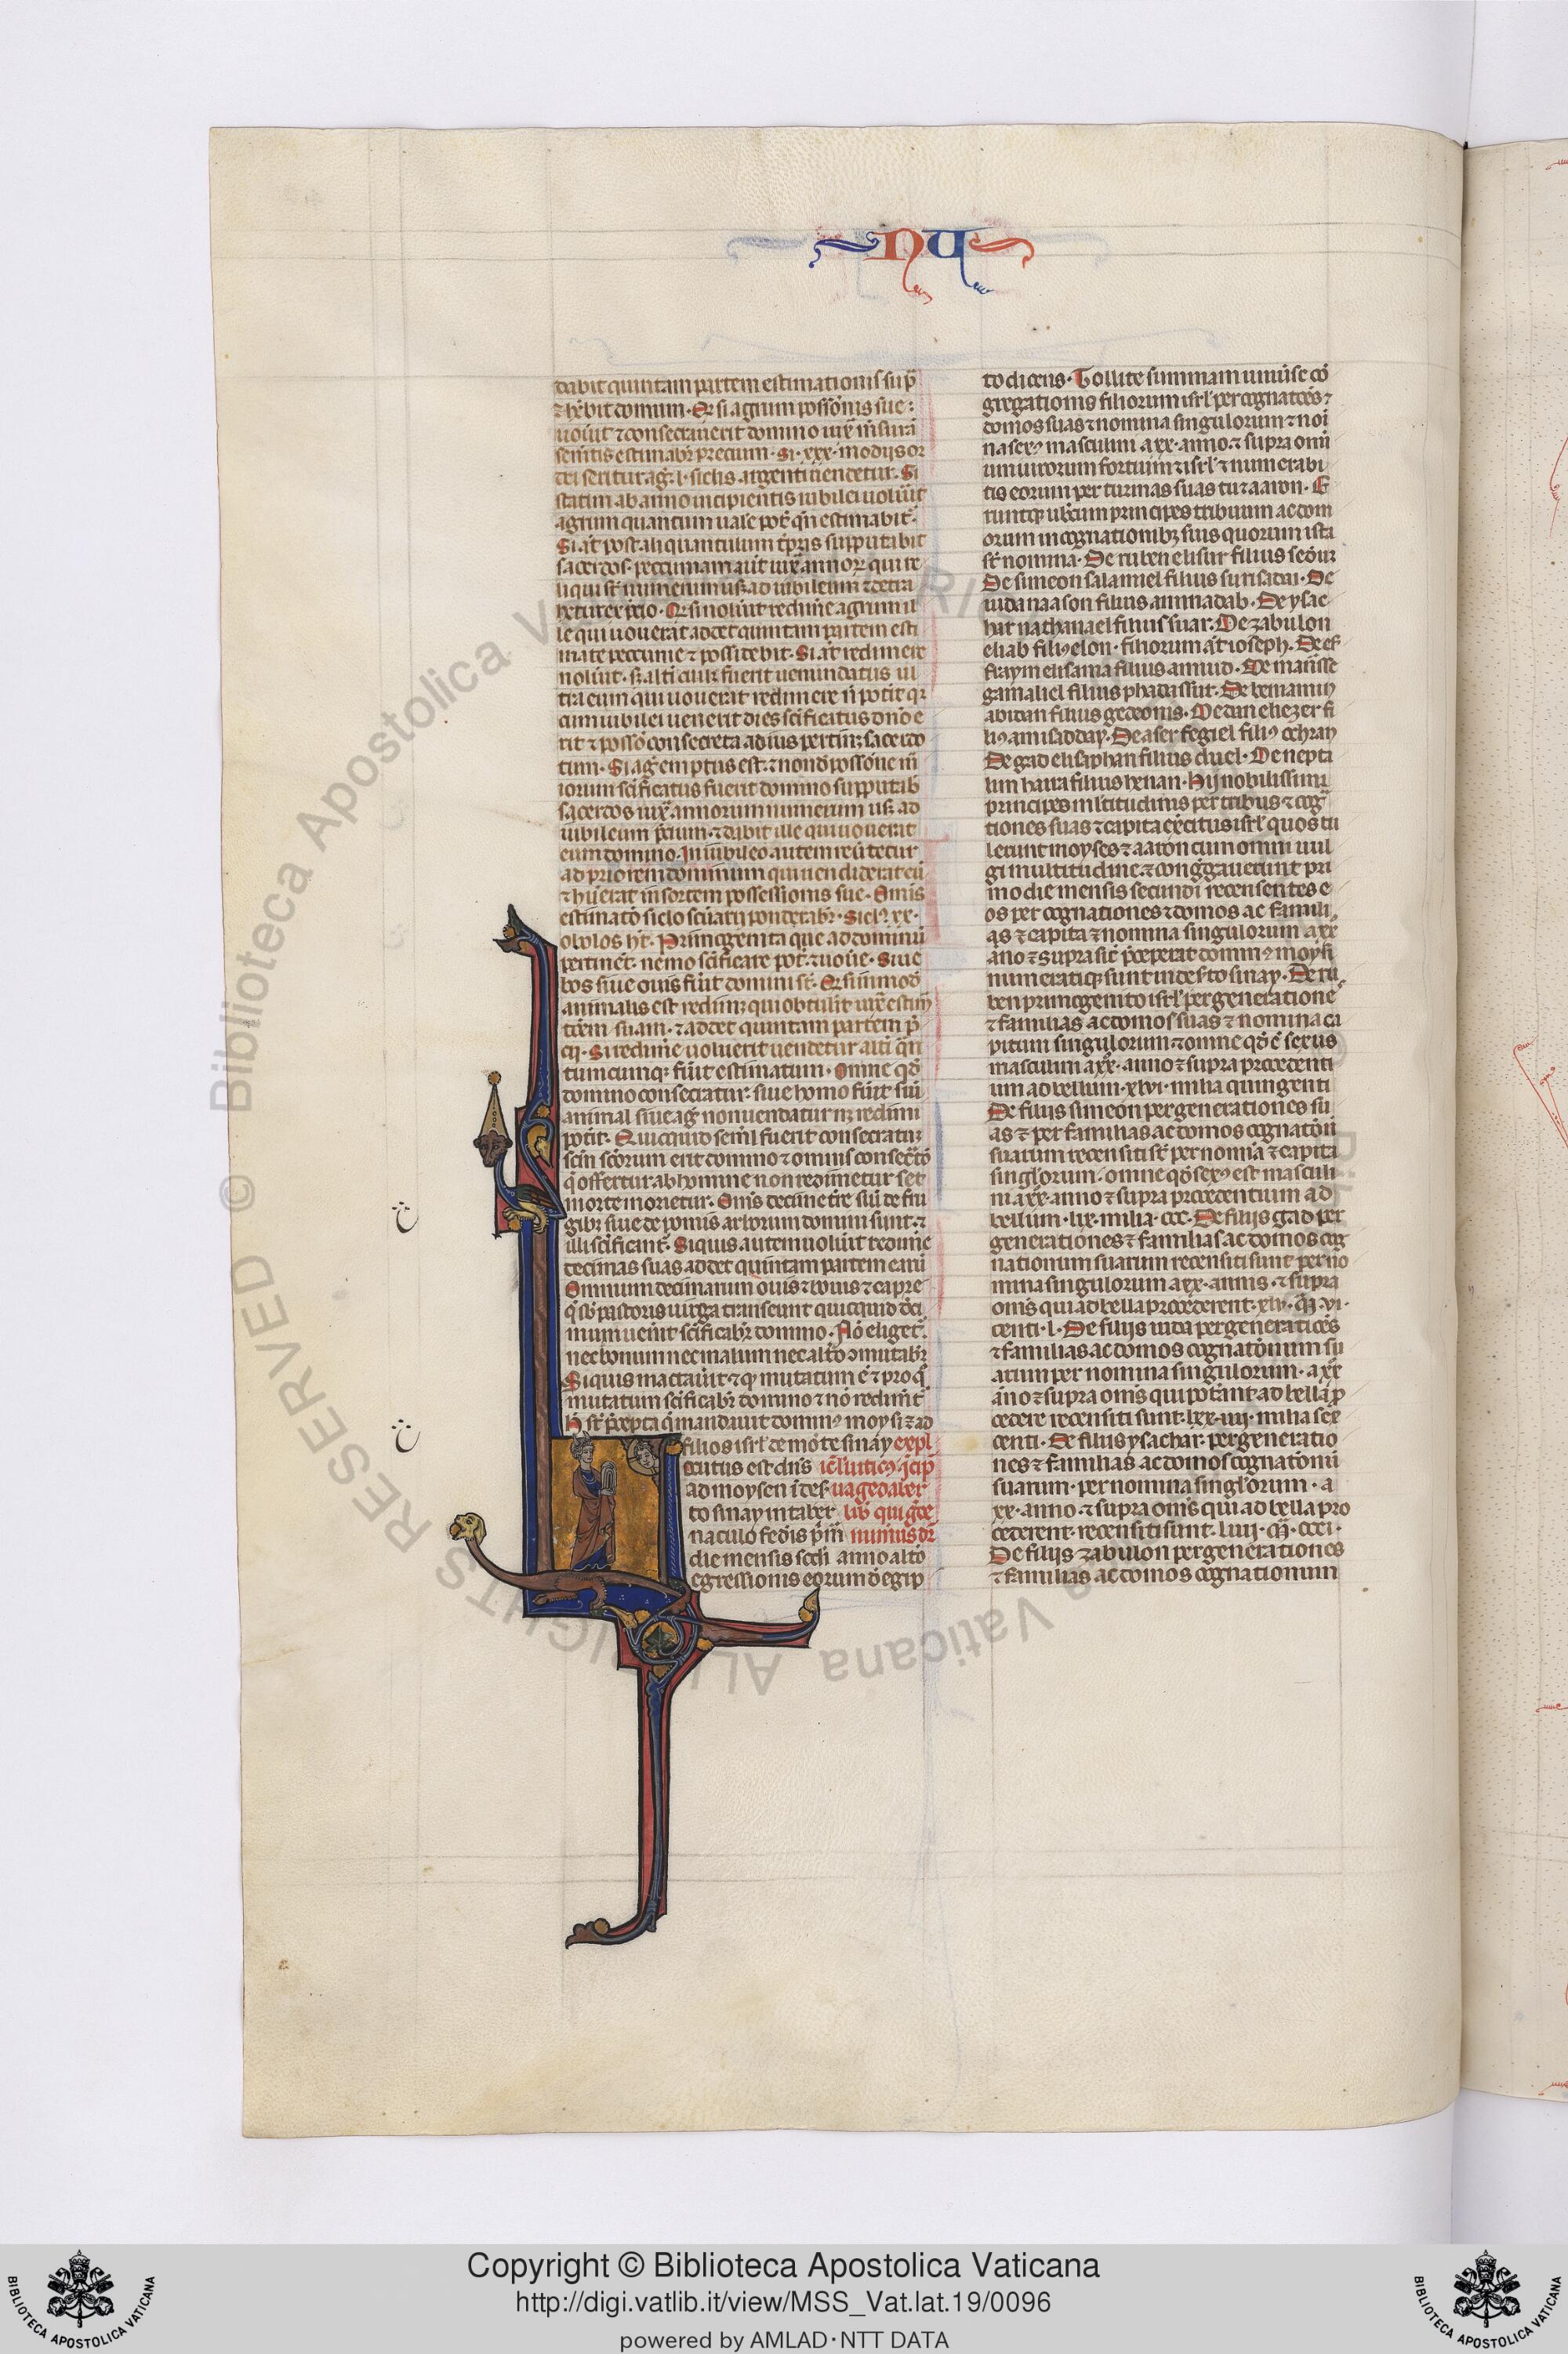 NU
dabit quintam partem estimationis sup̄
⁊ hēbit domum · Et si agrum possōnis sue :
uou̓it ⁊ consecrauerit domino iux̄ m̄surā
sem̄tis estimabr̄ precium · Si · xxx · modijs or
dei seritur ag̓ · l · siclis argenti uendetur · Si
statim ab anno incipientis iubilei uou̓it
agrum quantum uale pot̓ tm̄ estimabit̓ ·
Si aūt post aliquantulum tp̄ris supputabit
sacerdos · peccuniam iux̄ annoꝝ qui re
liqui st̄ numerum usꝫ ad iubileum ⁊ detra
hetur ex p̄cio · Et si uolu̓it redime̓ agrum il
le qui uouerat addet quintam partem esti
mate peccunie ⁊ possidebit · Si aūt redimere
nolu̓it · sꝫ alt̓i cuilꝫ fuerit uenundatus ul
tra eum qui uouerat redimere n̄ pot̓it qꝛ
cum iubilei uenerit dies sc̄ificatus dn̄o e
rit ⁊ possō consecrata ad ius pertinꝫ sacerdo
tum · Si ag̓ emptus est ⁊ non d̓ possōne m̄
iorum sc̄ificatus fuerit domino supputab̄
sacerdos iux̄ annorum numerum usꝫ ad
iubileum p̄cium · ⁊ dabit ille qui uouerat
eum domino · In iubileo autem reu̓tetur
ad priorem dominum qui uendiderat eū
⁊ hūerat in sortem possessionis sue · Omīs
estimatō siclo sc̄uarij ponderabr̄ · Siclꝰ xx ·
obolos ht̄ · Primogenita que ad dominū
pertinēt · nemo sc̄ificare pot̓ ⁊ uoue̓ · Siue
bos siue ouis fu̓it domini st̄ · Et si inmūdū
animalis est redimꝫ qui obtulit iux̄ estim̄
tōem suam · ⁊ addet quintam partem p̄
cij · Si redime̓ noluerit uendetur alt̓i qn̄
tumcumqꝫ fu̓it estimatum · Omne qđ
domino consecratur · siue homo fu̓it siū
animal siue ag̓ non uendatur nꝫ redimi
pot̓it · Quicquid sem̄l fuerit consecratum
sc̄m sc̄orum erit domino ⁊ omīs consec̄tō
q̄ offertur ab homine non redimetur set
morte morietur · Omīs decime t̓re siū de fru
gibꝫ siue de pomis arborum domini sunt · ⁊
illi sc̄ificant̓ · Siquis autem uolu̓it redime̓
decimas suas addet quintam partem earū
Omnium decimarum ouis ⁊ bouis ⁊ capre
q̄ sb̄ pastoris uirga transeunt quicquid deci
mum uen̓it sc̄ificabr̄ domino · Nō eliget̓
nec bonum nec malum nec alt̓o ɔmutabr̄
Siquis mactau̓it ⁊ qđ mutatum ē ⁊ pro q̄
mutatum sc̄ificabr̄ domino ⁊ nō redimet̓
H̄ st̄ p̄cepta q̄ mandauit dominꝰ moysi ⁊ ad
filios isrl̄ de mōte sinay expl
ocutus est dn̄s leuiticꝰ · īcip̄
ad moysen ī des uagedaber
to sinay in taber lib̓ qui ⁊ de
naculo fed̓is p̄m̄ numerus d̄r
die mensis scd̓i anno alt̓o
egressionis eorum d̓ egip
to dicens · Tollite summam uniu̓se cō
gregationis filiorum isrl̄ per cognatōes ⁊
domos suas ⁊ nomina singulorum ⁊ noī
na sexꝰ masculini a xx · anno · ⁊ supra omī
um uirorum fortium ⁊ isrl̄ ⁊ numerabi
tis eorum per turmas suas tu ⁊ aaron · E
runtqꝫ ub̓cum principes tribuum ac dom
orum in cognationibꝫ suis quorum ista
st̄ nomina · De ruben elisur filius sedeur
De simeon salamiel filius surisadai · De
iuda naason filius aminadab · De ysac
har nathanael filius suar · De zabulon
eliab filiꝰ elon · filiorum aūt ioseph · De ef
fraym elisama filius amiud · De manasse
gamaliel filius phadassur · De beniamin
abidan filius gedeonis · De dan eliezer fi
liꝰ amisadday · De aser fegiel filiꝰ ochran
De gad elisaphan filius duel · De nepta
lim haira filius henan · Hij nobilissimi
principes ml̄titudinis per tribus ⁊ cog̓
tiones suas ⁊ capita ex̓citus isrl̄ quos tu
lerunt moyses ⁊ aaron cum omni uul
gi multitudine ⁊ cong̓gauerunt pri
mo die mensis secundi recensentes e
os per cognationes ⁊ domos ac famili
as ⁊ capita ⁊ nomina singulorum a xx
āno ⁊ supra sic̄ p̄ceperat dominꝰ moysi
numeratiqꝫ sunt in des̓to sinay · De ru
ben primogenito isrl̄ per generatione
⁊ familias ac domos suas ⁊ nomina ca
pitum singulorum ⁊ omne qđ ē sexus
masculini a xx · anno ⁊ supra procedenti
um ad bellum · xlvi · milia quingenti
De filijs simeon per generationes su
as ⁊ per familias ac domos cognatōnū
suarum recensiti st̄ per nomīa ⁊ capita
singl̄orum · omne qđ sexꝰ est masculi
ni a xx · anno ⁊ supra procedentium ad
bellum · lix · milia · ccc · De filijs gad per
generationes ⁊ familias ac domos cog
nationum suarum recensiti sunt per no
mina singulorum a xx · annis · ⁊ supra
omīs qui ad bella procederent · xlv · M̄ · vi ·
centi · l · De filijs iuda per generatiōes
⁊ familias ac domos cognatōnum su
arum per nomina singulorum · a xx
āno ⁊ supra omīs qui pot̓ant ad bella p̄
cedere recensiti sunt · lxx · iiij · milia sex
centi · De filijs ysachar · per generatio
nes ⁊ familias ac domos cognatōnū
suarum · per nomina singl̄orum · a
xx · anno · ⁊ supra omīs qui ad bella pro
cederent · recensiti sunt · liiij · M̄ · cccc ·
De filijs zabulon per generationes
⁊ familias ac domos cognationum
© Biblioteca Apostolica Vaticana ALL RIGHTS RESERVED
Copyright © Biblioteca Apostolica Vaticana
http://digi.vatlib.it/view/MSS_Vat.lat.19/0096
powered by AMLAD·NTT DATA
BIBLIOTECA APOSTOLICA VATICANA
BIBLIOTECA APOSTOLICA VATICANA